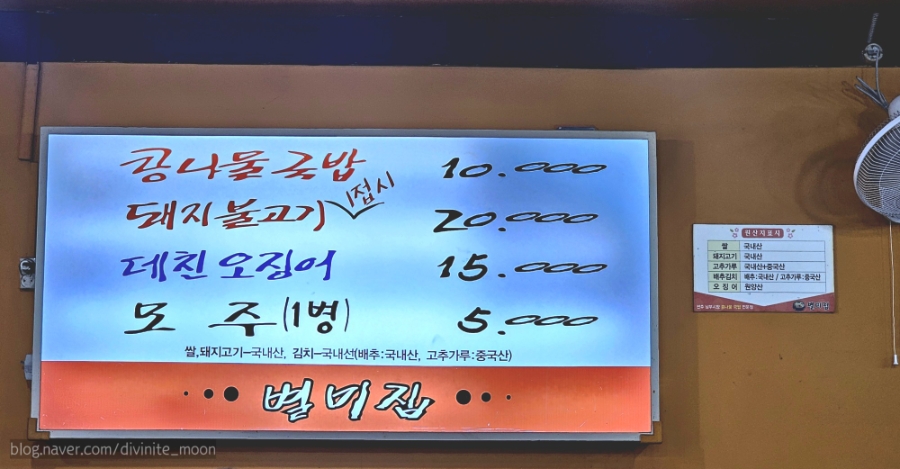 콩나물국밥 10.000
돼지불고기 1접시 20.000
데친오징어 15.000
모주(1병) 5.000
쌀,돼지고기-국내산, 김치-국내선(배추:국내산, 고추가루:중국산)
별미집
원산지표시
쌀 국내산
돼지고기 국내산
고추가루 국내산+중국산
배추김치 배추:국내산 / 고추가루:중국산
오징어 원양산
별미집
blog.naver.com/divinite_moon